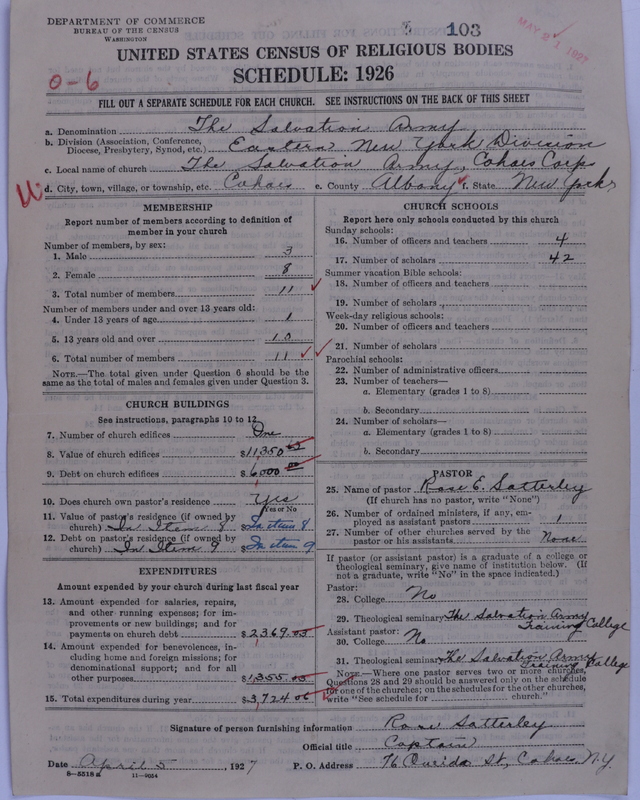 DEPARTMENT OF COMMERCE
BUREAU OF THE CENSUS
WASHINGTON
103
MAY 21 1927
UNITED STATES CENSUS OF RELIGIOUS BODIES
SCHEDULE: 1926
0-6
FILL OUT A SEPARATE SCHEDULE FOR EACH CHURCH. SEE INSTRUCTIONS ON THE BACK OF THIS SHEET
a. Denomination The Salvation Army
b. Division (Association, Conference, Diocese, Presbytery, Synod, etc.) Eastern New York Division
c. Local name of church The Salvation Army, Cohoes Corps
d. City, town, village, or township, etc. Cohoes e. County Albany f. State New York
MEMBERSHIP
Report number of members according to definition of member in your church
Number of members, by sex:
1. Male 3
2. Female 8
3. Total number of members 11
Number of members under and over 13 years old:
4. Under 13 years of age 1
5. 13 years old and over 10
6. Total number of members 11
NOTE.—The total given under Question 6 should be the same as the total of males and females given under Question 3.
CHURCH BUILDINGS
See instructions, paragraphs 10 to 12
7. Number of church edifices One
8. Value of church edifices $11,350.03
9. Debt on church edifices $6,000.00
10. Does church own pastor's residence Yes
Yes or No
11. Value of pastor's residence (if owned by church) In Item 8 $ In item 8
12. Debt on pastor's residence (if owned by church) In Item 9 $ In item 9
EXPENDITURES
Amount expended by your church during last fiscal year
13. Amount expended for salaries, repairs, and other running expenses; for improvements or new buildings; and for payments on church debt $2,369.03
14. Amount expended for benevolences, including home and foreign missions; for denominational support; and for all other purposes $1,355.03
15. Total expenditures during year $3,724.06
CHURCH SCHOOLS
Report here only schools conducted by this church
Sunday schools:
16. Number of officers and teachers 4
17. Number of scholars 42
Summer vacation Bible schools:
18. Number of officers and teachers
19. Number of scholars
Week-day religious schools:
20. Number of officers and teachers
21. Number of scholars
Parochial schools:
22. Number of administrative officers
23. Number of teachers—
a. Elementary (grades 1 to 8)
b. Secondary
24. Number of scholars—
a. Elementary (grades 1 to 8)
b. Secondary
PASTOR
25. Name of pastor Rose E. Satterley
(If church has no pastor, write "None")
26. Number of ordained ministers, if any, employed as assistant pastors 1
27. Number of other churches served by the pastor or his assistants None
If pastor (or assistant pastor) is a graduate of a college or theological seminary, give name of institution below. (If not a graduate, write "No" in the space indicated.)
Pastor:
28. College No
29. Theological seminary The Salvation Army Training College
Assistant pastor:
30. College No
31. Theological seminary The Salvation Army Training College
NOTE.—Where one pastor serves two or more churches, Questions 28 and 29 should be answered only on the schedule for one of the churches; on the schedules for the other churches, write "See schedule for church."
Signature of person furnishing information Rose Satterley
Official title Captain
Date April 5, 1927 P. O. Address 76 Oneida St, Cohoes, N.Y.
8-5518a 11-9054